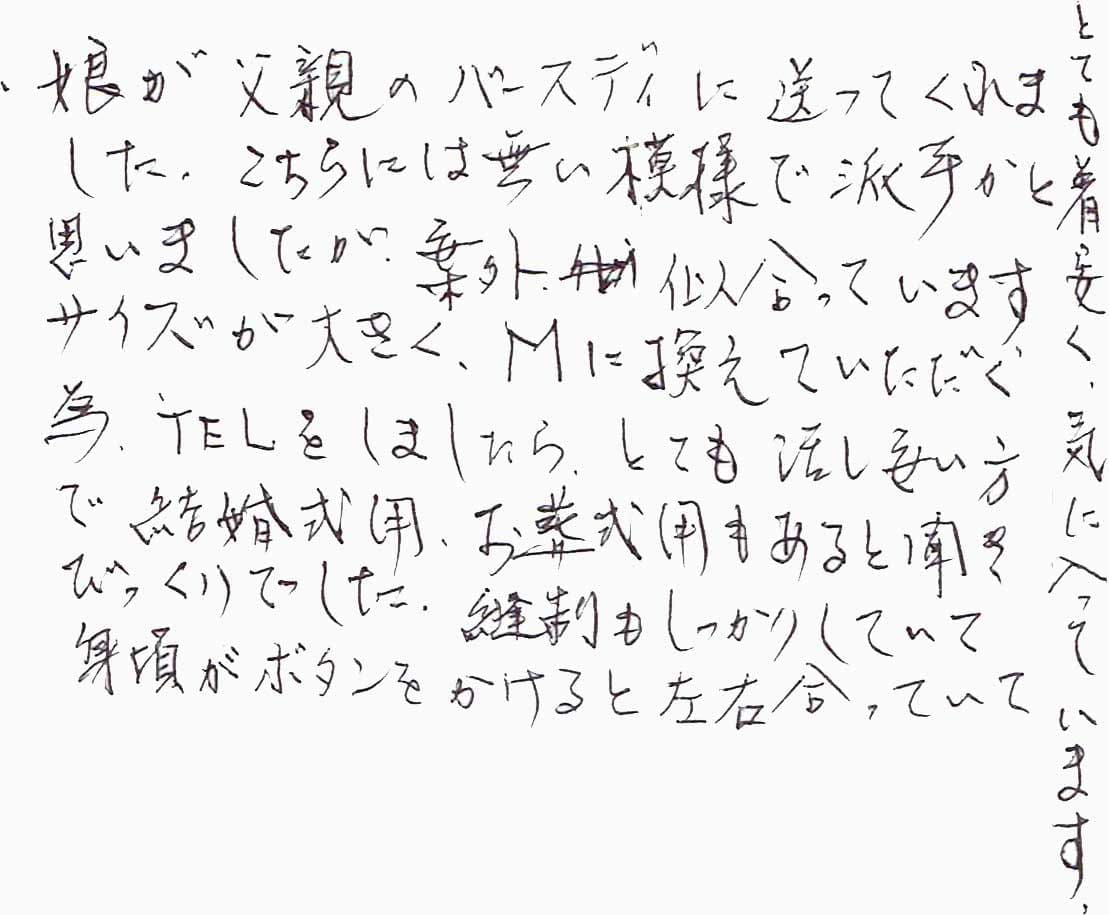 娘が父親のバースディに送ってくれま
した、こちらには無い模様で派手かと
思いましたが、案外、似合っています
サイズが大きく、Mに換えていただく
為、TELをしましたら、とても話し安い方
で結婚式用、お葬式用もあると聞き
びっくりでした、縫制もしっかりしていて
身頃がボタンをかけると左右合っていて
とても着安く、気に入っています、